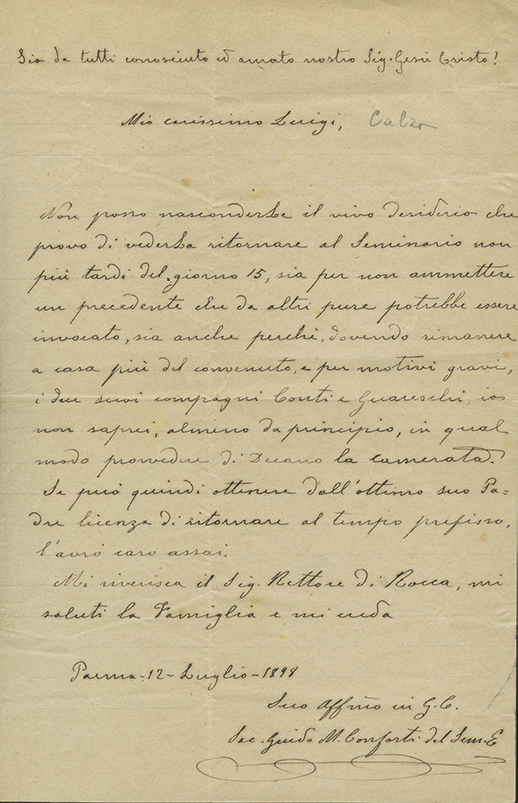 Sia da tutti conosciuto ed amato nostro Sig. Gesù Cristo!
Mio carissimo Luigi,
Non posso nasconderLe il vivo desiderio che
provo di vederLa ritornare al Seminario non
più tardi del giorno 15, sia per non ammettere
un precedente che da altri pure potrebbe essere
invocato, sia anche perchè, dovendo rimanere
a casa più del convenuto, e per motivi gravi,
i due suoi compagni Conti e Guareschi, io
non saprei, almeno da principio, in qual
modo provvedere di Decano la camerata.
Se può quindi ottenere dall'ottimo suo Pa-
dre licenza di ritornare al tempo prefisso,
l'avrò caro assai.
Mi riverisca il Sig. Rettore di Rocca, mi
saluti la Famiglia e mi creda
Parma-12-Luglio-1898
Suo Affmo in G. C.
Sac. Guido M. Conforti del Sem. E